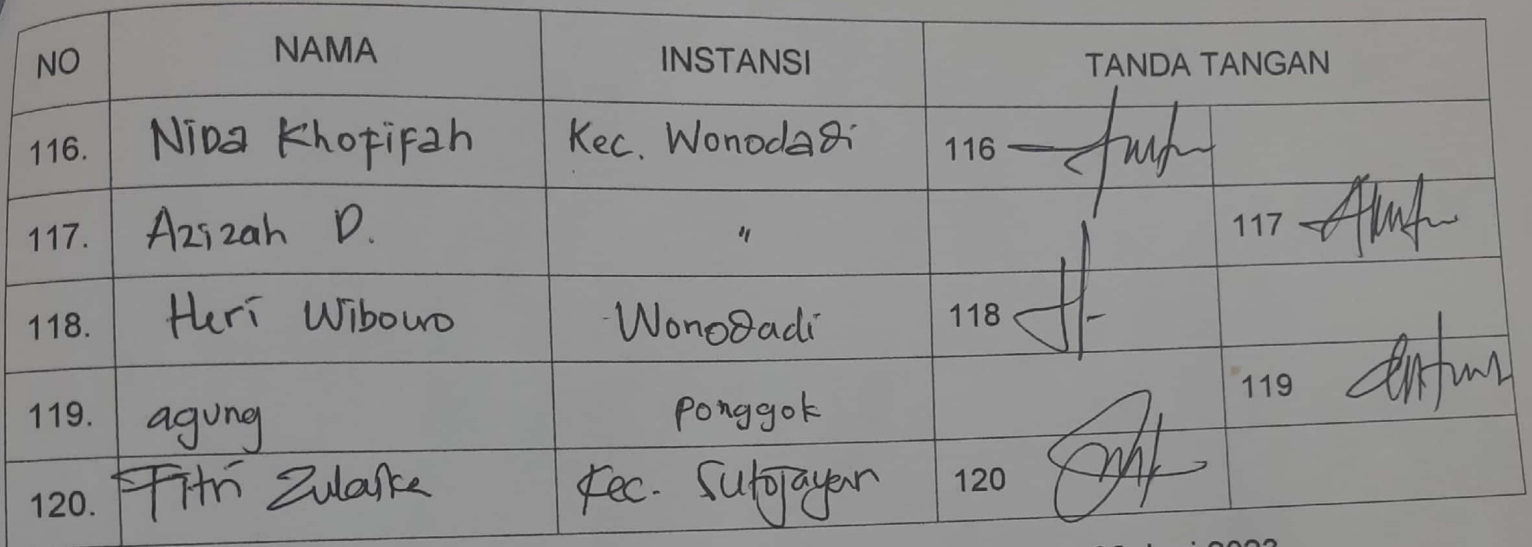 NO NAMA INSTANSI TANDA TANGAN
116. Nida Khofifah Kec. Wonodadi 116
117. Azizah D. " 117
118. Heri Wibowo Wonodadi 118
119. agung Ponggok 119
120. Fitri Zulaika Kec. Sutojayan 120